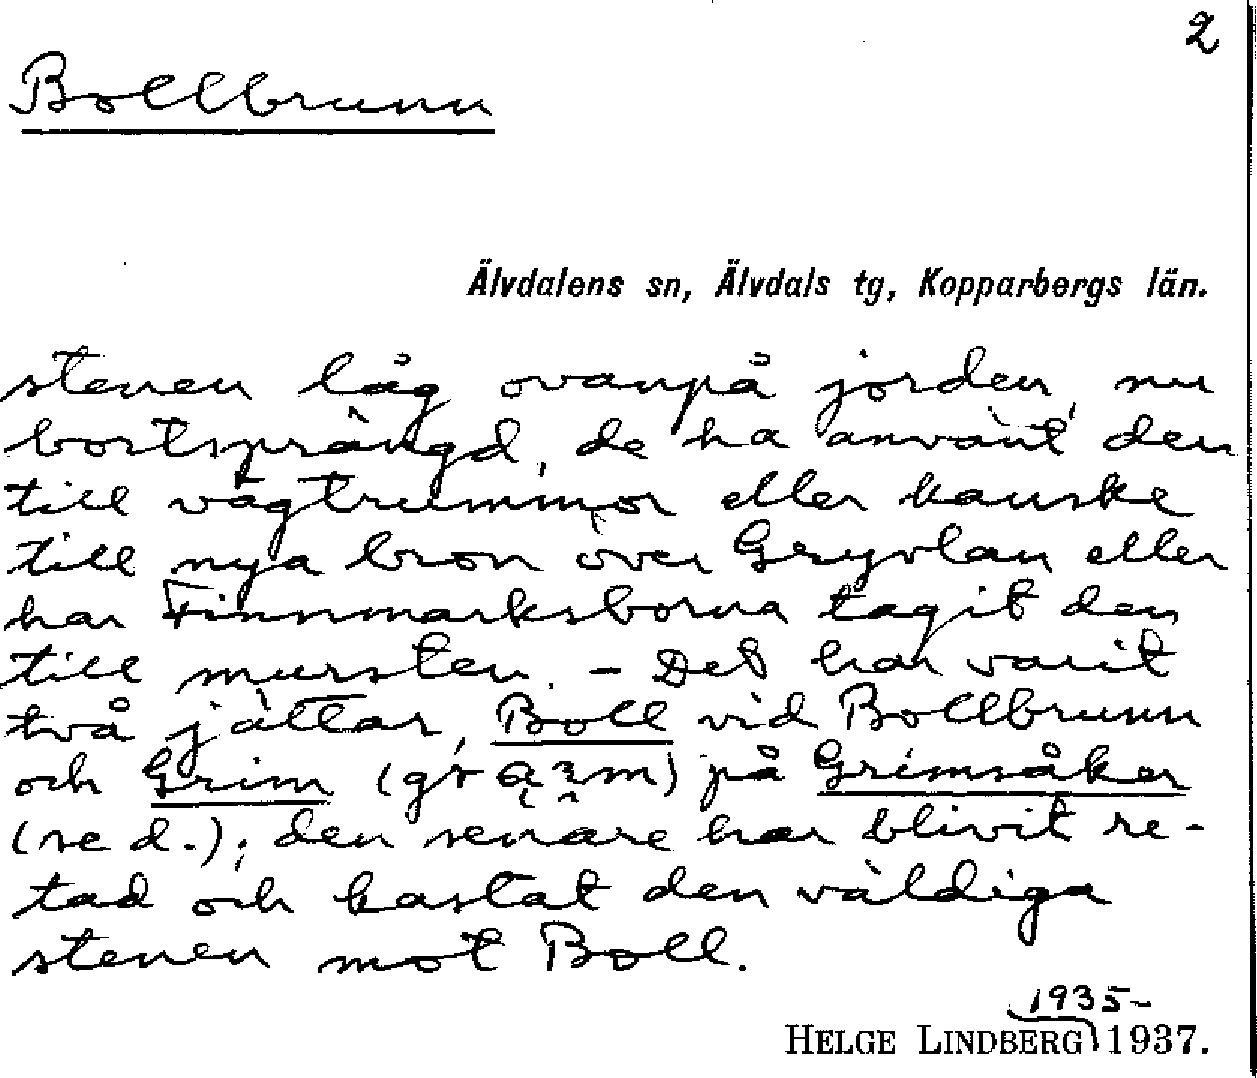 2
Bollbrunn
Älvdalens sn, Älvdals tg, Kopparbergs län.
stenen låg ovanpå jorden, nu
bortsprängd, de ha använt den
till vägtrummor eller kanske
till nya bron över Gryvlan eller
har Finnmarksborna tagit den
till mursten. – Det har varit
två jättar, Boll vid Bollbrunn
och Grim på Grimsåker
(se d.); den senare har blivit re-
tad och kastat den väldiga
stenen mot Boll.
1935–
HELGE LINDBERG 1937.